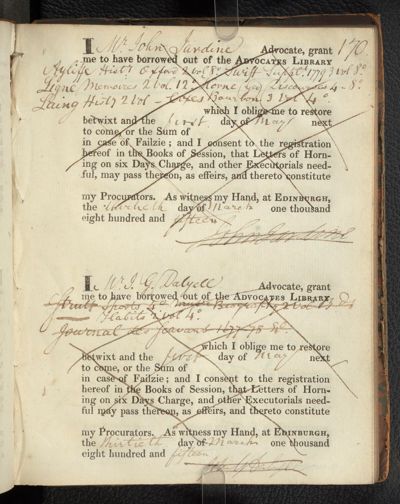 170
I Mr John Jardine Advocate, grant
me to have borrowed out of the ADVOCATES LIBRARY
Ayliffe Hist. Oxford 2 vol 8º Swift 1779 3 vol 8º
Ligne Memoires 2 Vol. 12º Horne Discourses 4 - 8º
Laing Hist. 2 vol - Coxes Bourbon 3 Vol 4º
which I oblige me to restore
betwixt and the first day of May next
to come, or the Sum of
in case of Failzie; and I consent to the registration
hereof in the Books of Session, that Letters of Horn-
ing on six Days Charge, and other Executorials need-
ful, may pass thereon, as effeirs, and thereto constitute
my Procurators. As witness my Hand, at EDINBURGH,
the thirtieth day of March one thousand
eight hundred and fifteen
John Jardine
I Mr J. G. Dalyell Advocate, grant
me to have borrowed out of the ADVOCATES LIBRARY
Strutt Sports 4º Biograph 2 Vol
Habits 2 vol 4º
Journal des Scavans
which I oblige me to restore
betwixt and the first day of May next
to come, or the Sum of
in case of Failzie; and I consent to the registration
hereof in the Books of Session, that Letters of Horn-
ing on six Days Charge, and other Executorials need-
ful may pass thereon, as effeirs, and thereto constitute
my Procurators. As witness my Hand, at EDINBURGH,
the thirtieth day of March one thousand
eight hundred and fifteen